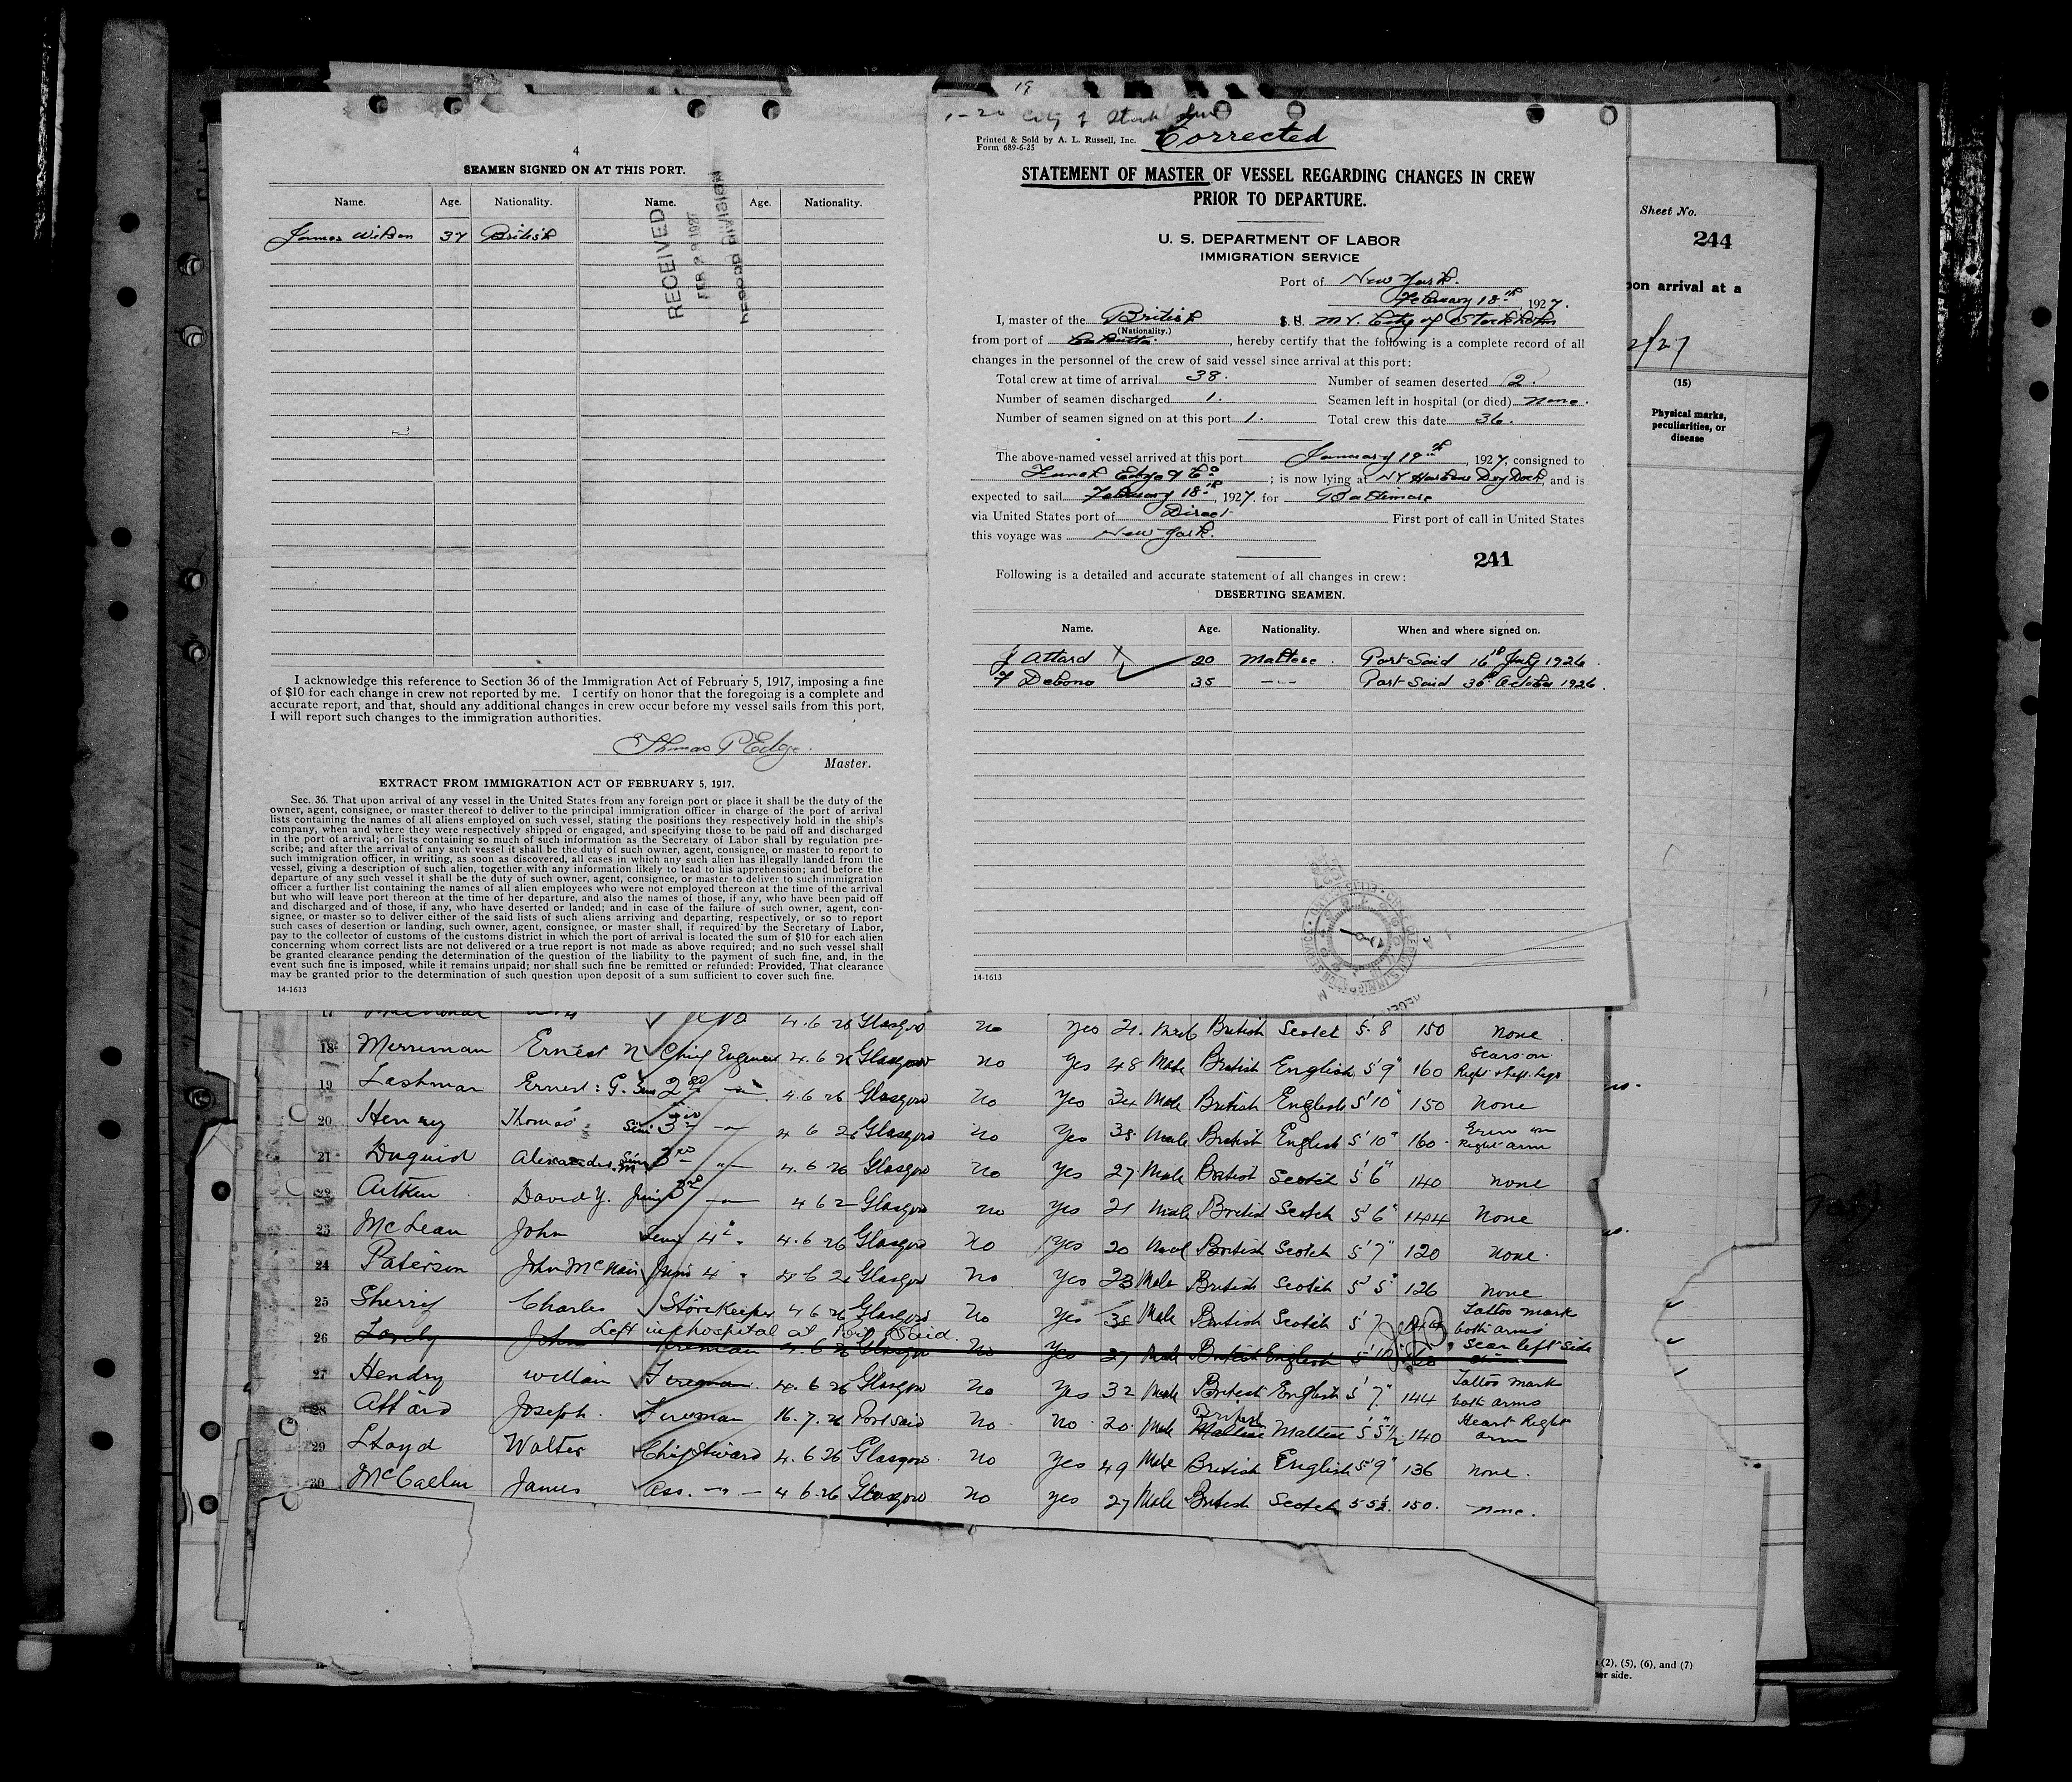 4
SEAMEN SIGNED ON AT THIS PORT.
Name. Age. Nationality. Name. Age. Nationality.
James Wilson 37 British
RECEIVED
FEB 1927
RECORD DIVISION
I acknowledge this reference to Section 36 of the Immigration Act of February 5, 1917, imposing a fine
of $10 for each change in crew not reported by me. I certify on honor that the foregoing is a complete and
accurate report, and that, should any additional changes in crew occur before my vessel sails from this port,
I will report such changes to the immigration authorities.
Thomas P Edge.
Master.
EXTRACT FROM IMMIGRATION ACT OF FEBRUARY 5, 1917.
Sec. 36. That upon arrival of any vessel in the United States from any foreign port or place it shall be the duty of the
owner, agent, consignee, or master thereof to deliver to the principal immigration officer in charge of the port of arrival
lists containing the names of all aliens employed on such vessel, stating the positions they respectively hold in the ship's
company, when and where they were respectively shipped or engaged, and specifying those to be paid off and discharged
in the port of arrival; or lists containing so much of such information as the Secretary of Labor shall by regulation pre-
scribe; and after the arrival of any such vessel it shall be the duty of such owner, agent, consignee, or master to report to
such immigration officer, in writing, as soon as discovered, all cases in which any such alien has illegally landed from the
vessel, giving a description of such alien, together with any information likely to lead to his apprehension; and before the
departure of any such vessel it shall be the duty of such owner, agent, consignee, or master to deliver to such immigration
officer a further list containing the names of all alien employees who were not employed thereon at the time of the arrival
but who will leave port thereon at the time of her departure, and also the names of those, if any, who have been paid off
and discharged and of those, if any, who have deserted or landed; and in case of the failure of such owner, agent, con-
signee, or master so to deliver either of the said lists of such aliens arriving and departing, respectively, or so to report
such cases of desertion or landing, such owner, agent, consignee, or master shall, if required by the Secretary of Labor,
pay to the collector of customs of the customs district in which the port of arrival is located the sum of $10 for each alien
concerning whom correct lists are not delivered or a true report is not made as above required; and no such vessel shall
be granted clearance pending the determination of the question of the liability to the payment of such fine, and, in the
event such fine is imposed, while it remains unpaid; nor shall such fine be remitted or refunded: Provided, That clearance
may be granted prior to the determination of such question upon deposit of a sum sufficient to cover such fine.
14-1613
19
City of Stockholm
Printed & Sold by A. L. Russell, Inc.
Form 689-6-25
Corrected
STATEMENT OF MASTER OF VESSEL REGARDING CHANGES IN CREW
PRIOR TO DEPARTURE.
U. S. DEPARTMENT OF LABOR
IMMIGRATION SERVICE
Port of New York.
February 18th, 1927.
I, master of the British S. S. MV. City of Stockholm
(Nationality.)
from port of Calcutta., hereby certify that the following is a complete record of all
changes in the personnel of the crew of said vessel since arrival at this port:
Total crew at time of arrival 38. Number of seamen deserted 2.
Number of seamen discharged 1. Seamen left in hospital (or died) None.
Number of seamen signed on at this port 1. Total crew this date 36.
The above-named vessel arrived at this port January 19th, 1927, consigned to
Funch Edye & Co; is now lying at NY Harbour Dry Dock, and is
expected to sail February 18th, 1927. for Baltimore
via United States port of Direct First port of call in United States
this voyage was New York.
241
Following is a detailed and accurate statement of all changes in crew:
DESERTING SEAMEN.
Name. Age. Nationality. When and where signed on.
J Attard 20 Maltese. Port Said 16th July 1926.
F Debono 35 -"- Port Said 30th October 1926.
14-1613
Sheet No.
244
pon arrival at a
2/27
(15)
Physical marks,
peculiarities, or
disease
17 4.6 26 Glasgow no yes 21. Male British Scotch 5' 8 150 none.
18 Merriman Ernest N Chief Engineer 4.6 26 Glasgow no Yes 48 Male British English 5'9" 160 Scars on Right & Left Legs
19 Lashman Ernest: G. 2nd -"- 4.6 26 Glasgow no Yes 34 Male British English 5'10" 150 none
20 Henry Thomas Sen 3rd -"- 4 6 26 Glasgow no Yes 38 Male British English 5'10" 160 Right arm
21 Duguid Alexander. M 3rd -"- 4.6 26 Glasgow no Yes 27 Male British Scotch 5'6" 140 none
22 Aitken David Y. Jun 3rd -"- 4 6 2 Glasgow no Yes 21 Male British Scotch 5'6" 144 none
23 McLean John Sen 4th " 4.6 26 Glasgow no Yes 20 Male British Scotch 5'7" 120 none.
24 Paterson John McNair Jun 4 " 4.6 26 Glasgow no. Yes 23 Male British Scotch 5'5" 126 none
25 Sherrif Charles Storekeeper 4 6 26 Glasgow no Yes 38 Male British Scotch 5'7 Tattoo mark both arms
Left in hospital at Port Said.
26 John Fireman 4.6 26 Glasgow no Yes 27 Male British English 5'10" 160 Scar left side
27 Hendry William Fireman. 4.6 26 Glasgow no Yes 32 Male British English 5'7" 144 Tattoo marks both arms
28 Attard Joseph. Fireman 16.7.26 Port Said no no 20 Male British Maltese Maltese 5'5½ 140 Heart Right arm
29 Lloyd Walter Chief Steward 4.6 26 Glasgow. no Yes 49 Male British English 5'9" 136 none.
30 McCallum James Ass. -"- 4 6.26 Glasgow no yes 27 Male British Scotch 5 5½. 150. none.
(2), (5), (6), and (7)
er side.